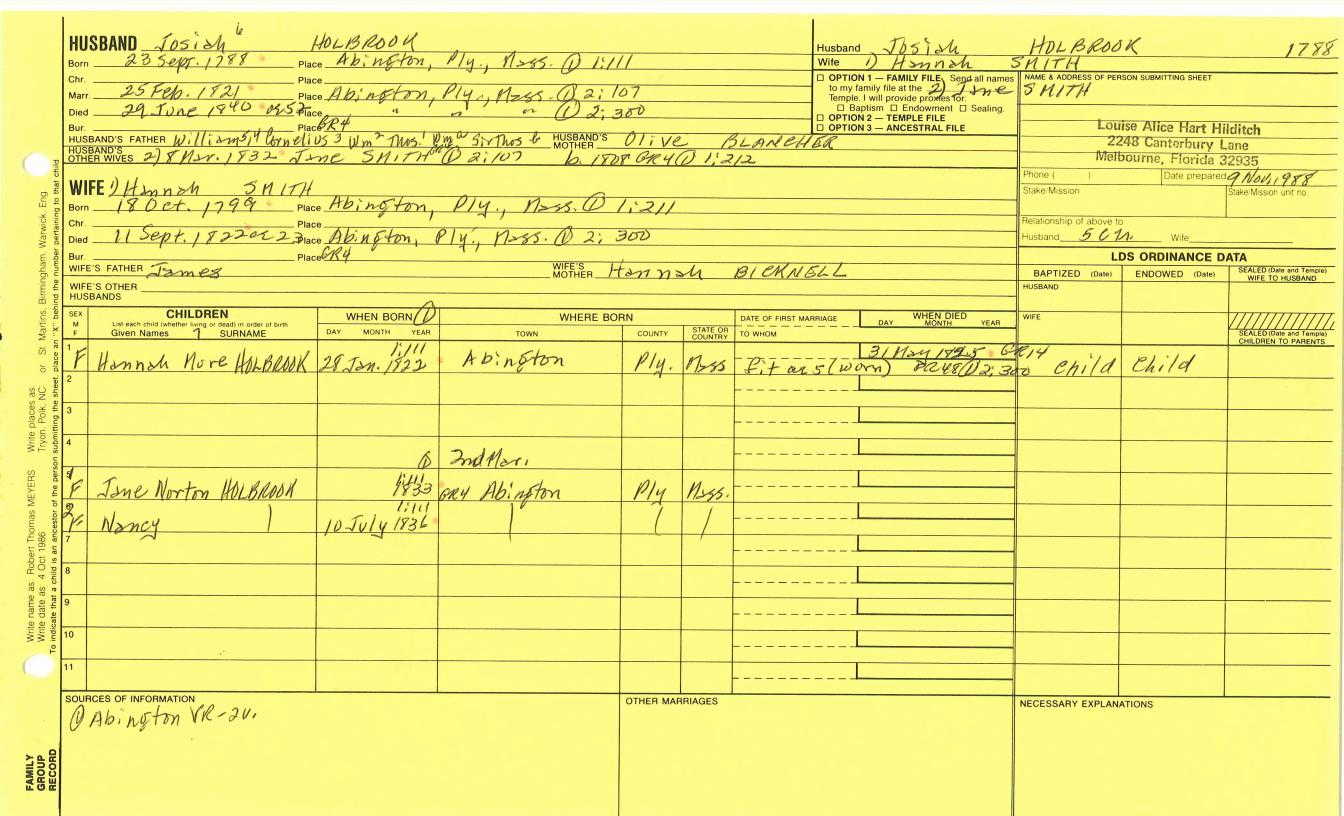 HUSBAND Josiah 6 HOLBROOK
Born 23 Sept. 1788 Place Abington, Ply., Mass. ① 1:111
Chr. Place
Marr. 25 Feb. 1821 Place Abington, Ply., Mass. ① 2:107
Died 29 June 1840 or 52 Place " " " ① 2:300
Bur. Place GR4
HUSBAND'S FATHER William 5, 4 Cornelius 3 Wm 2 Thos. 1 Wm a Sir Thos b HUSBAND'S MOTHER Olive BLANCHER
HUSBAND'S OTHER WIVES 2) 8 Mar. 1832 Jane SMITH ① 2:107 b. 1808 GR4 ① 1:212
WIFE 1) Hannah SMITH
Born 18 Oct. 1799 Place Abington, Ply., Mass. ① 1:211
Chr. Place
Died 11 Sept. 1822 or 23 Place Abington, Ply., Mass. ① 2:300
Bur. Place GR4
WIFE'S FATHER James WIFE'S MOTHER Hannah BICKNELL
WIFE'S OTHER HUSBANDS
Husband Josiah HOLBROOK 1788
Wife 1) Hannah SMITH
2) Jane SMITH
☐ OPTION 1 — FAMILY FILE Send all names
to my family file at the
Temple. I will provide proxies for:
☐ Baptism ☐ Endowment ☐ Sealing.
☐ OPTION 2 — TEMPLE FILE
☐ OPTION 3 — ANCESTRAL FILE
NAME & ADDRESS OF PERSON SUBMITTING SHEET
Louise Alice Hart Hilditch
2248 Canterbury Lane
Melbourne, Florida 32935
Phone ( ) Date prepared 9 Nov. 1988
Stake/Mission Stake/Mission unit no.
Relationship of above to
Husband 5C Wife
LDS ORDINANCE DATA
BAPTIZED (Date) ENDOWED (Date) SEALED (Date and Temple) WIFE TO HUSBAND
HUSBAND
WIFE
SEALED (Date and Temple) CHILDREN TO PARENTS
SEX M F
CHILDREN
List each child (whether living or dead) in order of birth
Given Names 7 SURNAME
WHEN BORN ①
DAY MONTH YEAR
WHERE BORN
TOWN COUNTY STATE OR COUNTRY
DATE OF FIRST MARRIAGE
TO WHOM
WHEN DIED
DAY MONTH YEAR
1 1:111 31 May GR14
F Hannah More HOLBROOK 28 Jan. 1822 Abington Ply. Mass (worn) ① 2:300 Child Child
2
3
4
① 2nd Mar.
1 1:111
F Jane Norton HOLBROOK 1833 GR4 Abington Ply Mass.
2 1:111
F Nancy 10 July 1836
7
8
9
10
11
SOURCES OF INFORMATION
① Abington VR-2v.
OTHER MARRIAGES
NECESSARY EXPLANATIONS
Write name as Robert Thomas MEYERS Write places as Tryon, Polk, NC or St. Martins, Birmingham, Warwick, Eng
Write date as 4 Oct 1986
To indicate that a child is an ancestor of the person submitting the sheet, place an "X" behind the number pertaining to that child
FAMILY
GROUP
RECORD